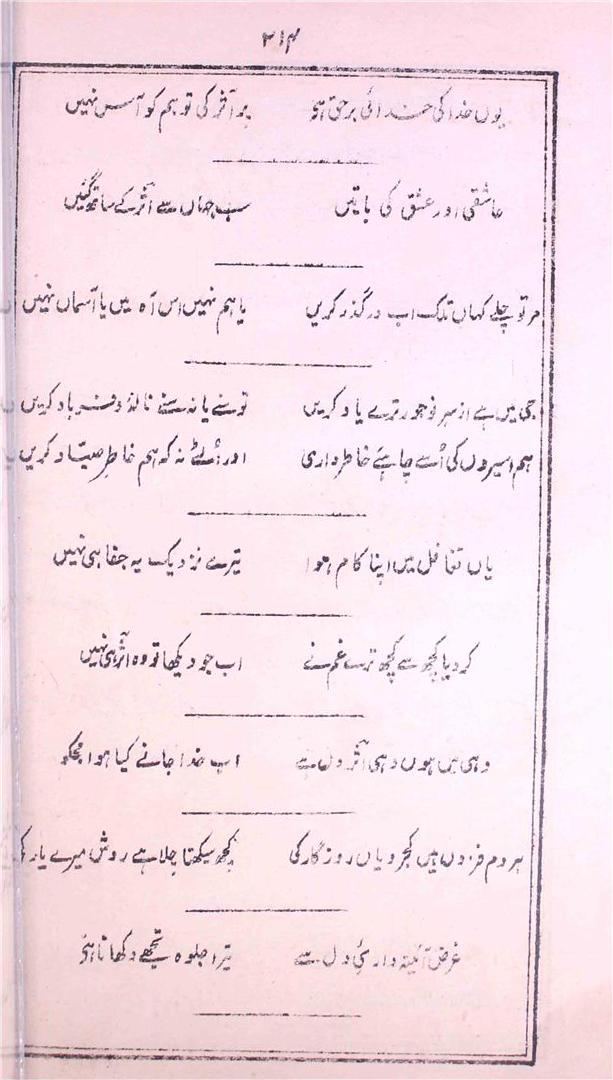 ۲۱۴
یوں خدا کی خدائی برحق ہی پر اثر کی تو ہم کو آس نہیں
عاشقی اور عشق کی باتیں سب جہاں سے اثر کے ساتھ گئیں
مر تو چلے کہاں تلک اب درگذر کریں یا ہم نہیں اس آہ میں یا آسماں نہیں
جی میں ہے از سر نو جور ترے یاد کریں تو سنے یا نہ سنے نالۂ و فریاد کریں
ہم اسیروں کی اُسے چاہیے خاطرداری اور اُلٹے نہ کہ ہم خاطر صیّاد کریں
یاں تغافل میں اپنا کام ہوا تیرے نزدیک یہ جفا ہی نہیں
کردیا کچھ سے کچھ ترے غم نے اب جو دیکھا تو وہ اثر ہی نہیں
وہی میں ہوں وہی اثر دل ہے اب خدا جانے کیا ہوا مجکو
ہر دم فزوں ہیں کجرویاں روزگار کی کچھ سیکھتا چلا ہے روش میرے یار کی
غرض آئینہ داریٔ دل سے تیرا جلوہ تجھے دکھانا ہی